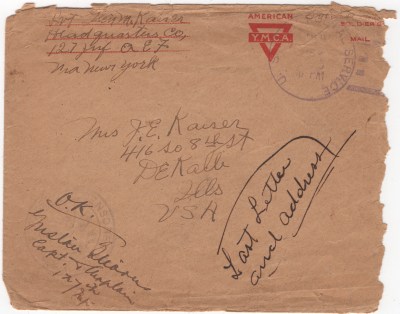 Pvt Kaiser
Headquarters Co,
127 Inf A E F
Via New York
AMERICAN
Y.M.C.A.
SOLDIER'S
MAIL
SERVICE
Mrs J. E. Kaiser
416 So 8th St
DeKalb
Ills
USA
Last Letter
and address
O.K.
Gustav Stearns
Capt Chaplain
127th
Inf.